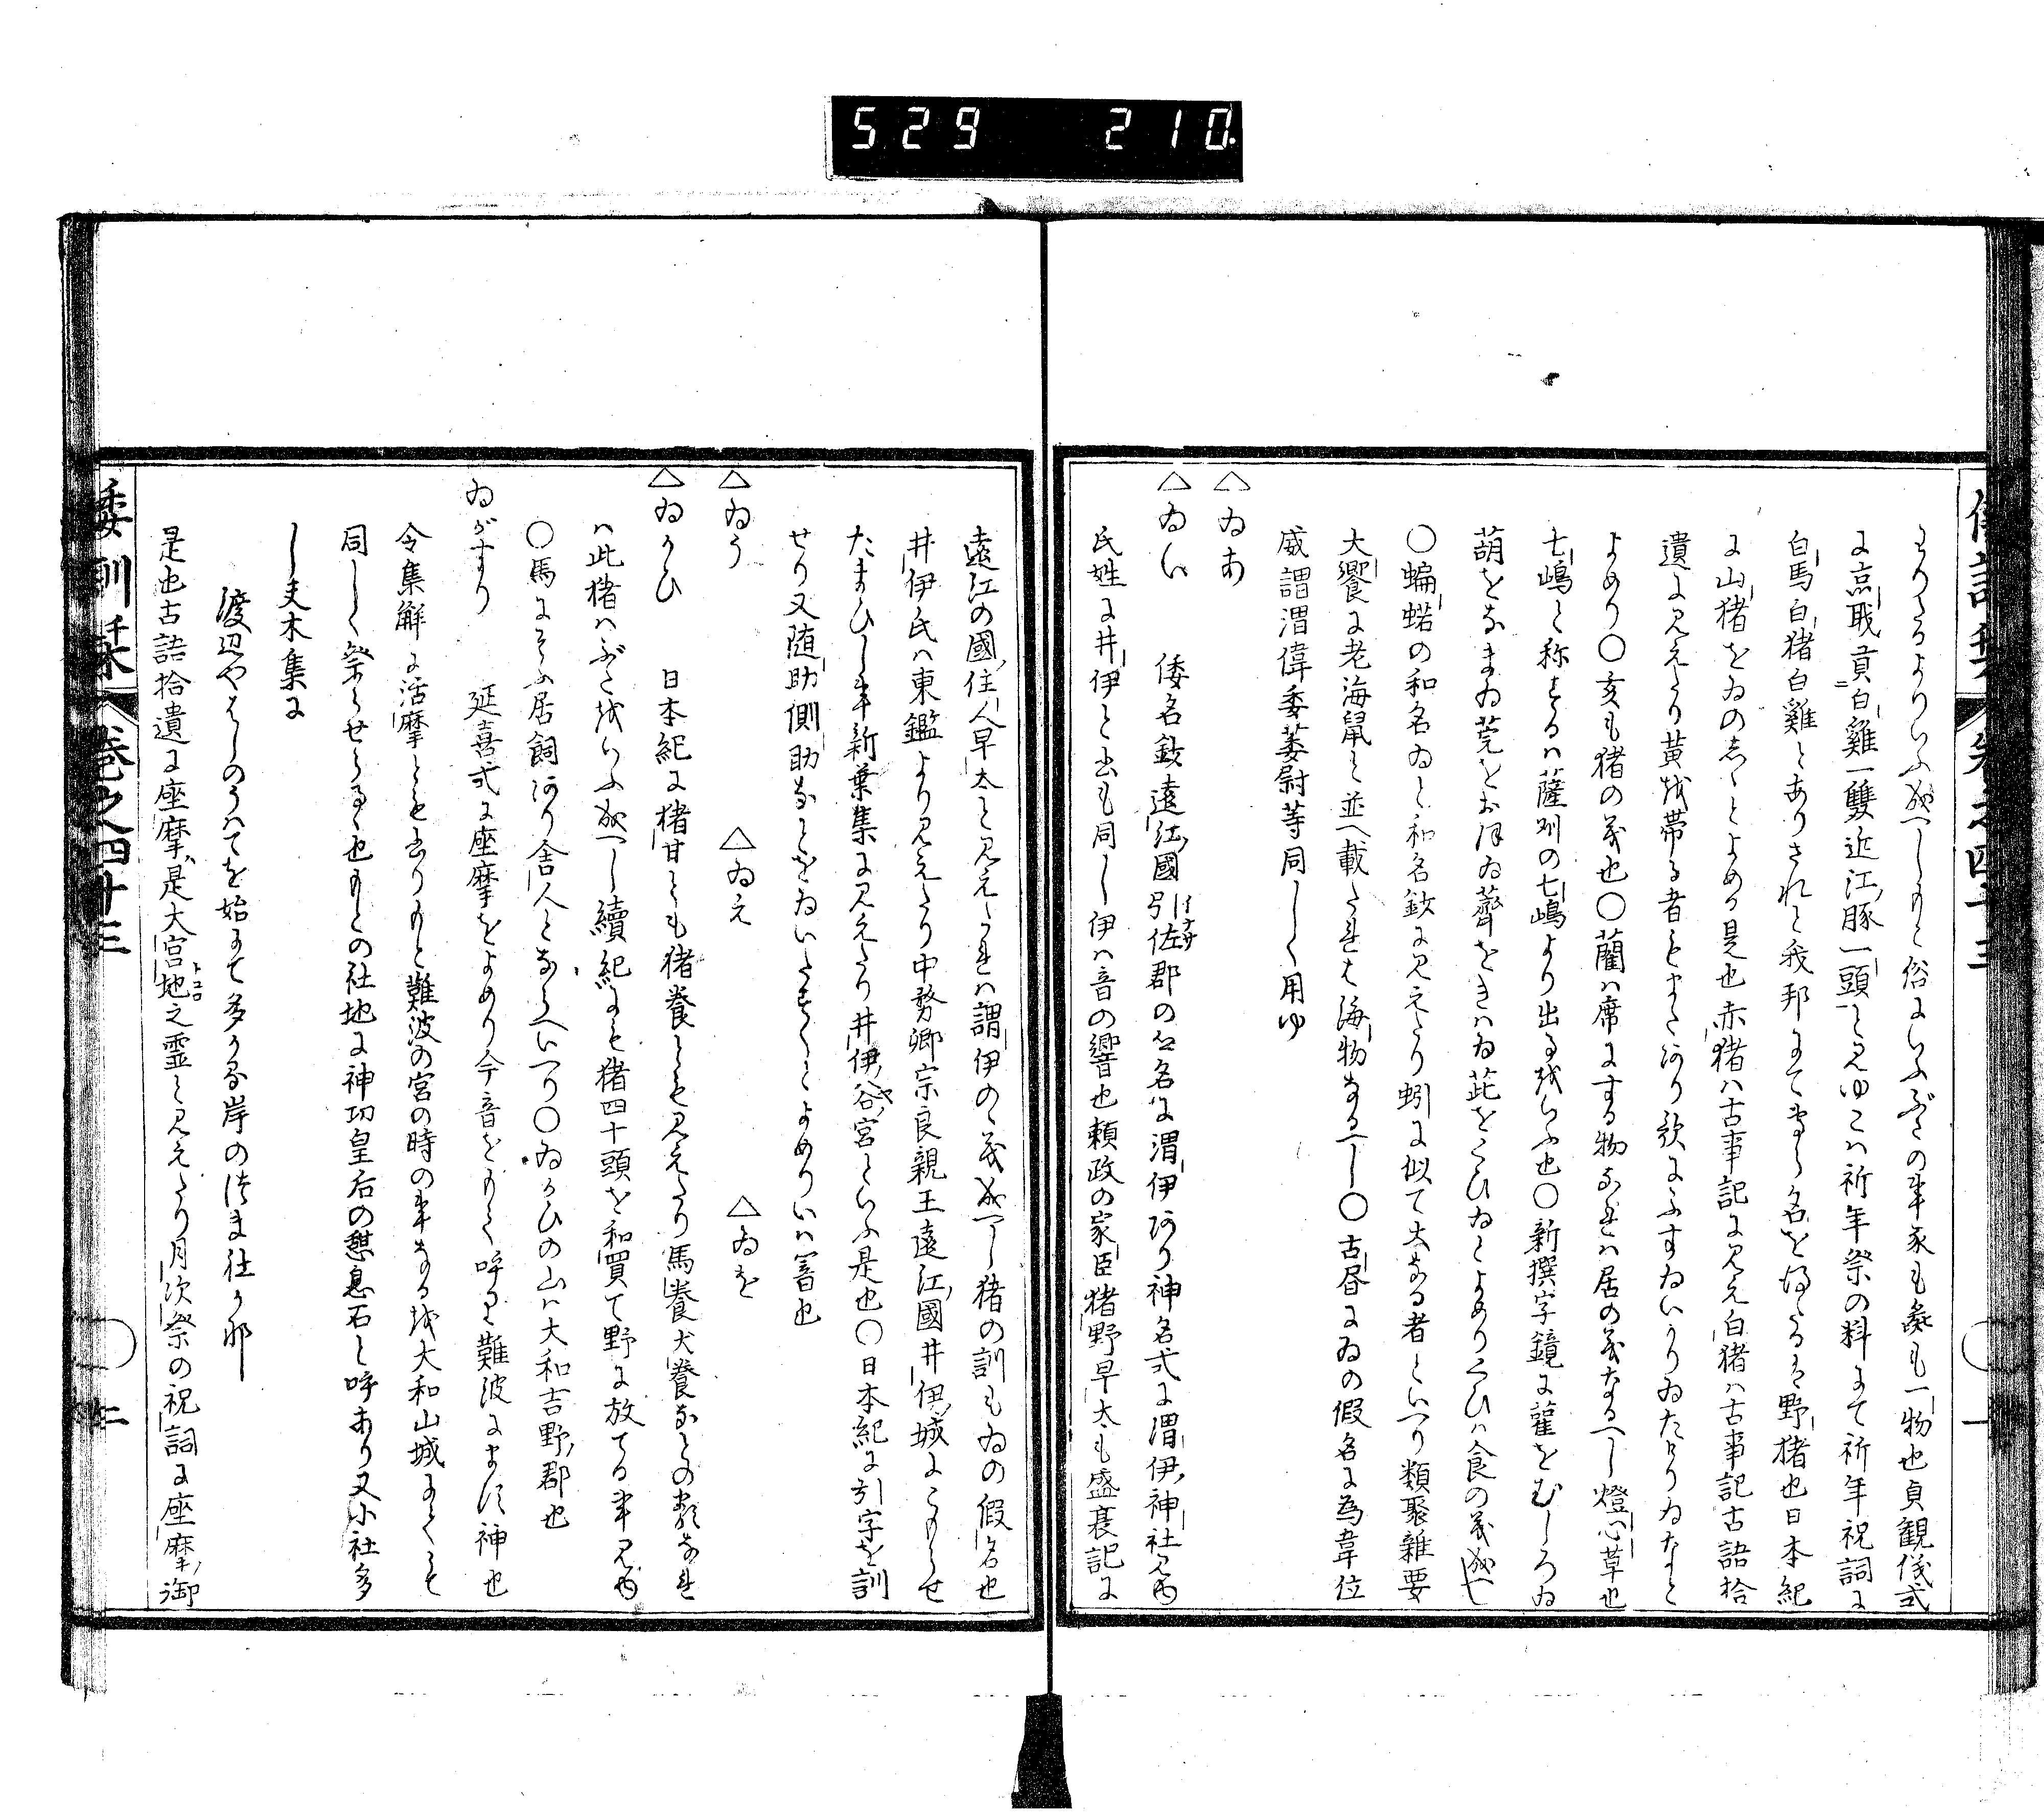 529 210
よりたるよりいふ成へしもと俗にいふぶたの事豕も彘も一物也貞観儀式
に点戢貢白雞一雙近江豚一頭と見ゆこは祈年祭の料にて祈年祝詞に
白馬白猪白雞とありされと我邦にて専ら名を得たるは野猪也日本紀
に山猪をゐのしゝとよめる是也赤猪は古事記に見え白猪は古事記古語拾
遺に見えたり黄を帯る者もまたあり歌にふすゐいかりゐたけりゐなと
よめり〇亥も猪の義也〇藺は席にする物なれは居の義なるへし燈心草也
七嶋と称するは薩州の七嶋より出るをいふ也〇新撰字鏡に雚をむしろゐ
葫をなまゐ莞をおほゐ薺をきはゐ茈をくひゐとよめりくひは食の義成へし
〇蝙蝫の和名ゐと和名鈔に見えたり蚓に似て大なる者といへり類聚雑要
大饗に老海鼠と並へ載たれは海物なるへし〇古昼にゐの假名に為韋位
威謂渭偉委萎尉等同しく用ゆ
△ゐあ
△ゐい 倭名鈔遠江國引佐イナサ郡の名に渭伊あり神名式に渭伊神社見ゆ
氏姓に井伊と出も同し伊は音の響也頼政の家臣猪野早太も盛衰記に
遠江の國住人早太と見えたれは謂伊のゝ義成へし猪の訓もゐの假名也
井伊氏は東鑑より見えたり中務卿宗良親王遠江國井伊城にこもらせ
たまひし事新葉集に見えたり井伊谷宮といふ是也〇日本紀に引字を訓
せり又随助側助なとをゐいたすくとよめりいは署也
△ゐう △ゐえ △ゐを
△ゐかひ 日本紀に猪甘とも猪養とも見えたり馬養犬養なとの類なれ
は此猪はぶたをいふ成へし續紀にも猪四十頭を和買て野に放てる事見ゆ
〇馬にそふ居飼あり舎人とならへいへり〇ゐかひの山は大和吉野郡也
ゐがすり 延喜式に座摩をよめり今音をもて呼り難波にます神也
令集解に活摩とも出りもと難波の宮の時の事なるを大和山城にても
同しく祭らせらるゝ也もとの社地に神功皇后の憩息石と呼あり又小社多
し夫木集に
渡辺やはしのうへてを始にて多かる岸のつま社か那
是也古語拾遺に座摩是大宮地トコロ之霊と見えたり月次祭の祝詞に座摩御
倭訓栞 巻之四十三 二